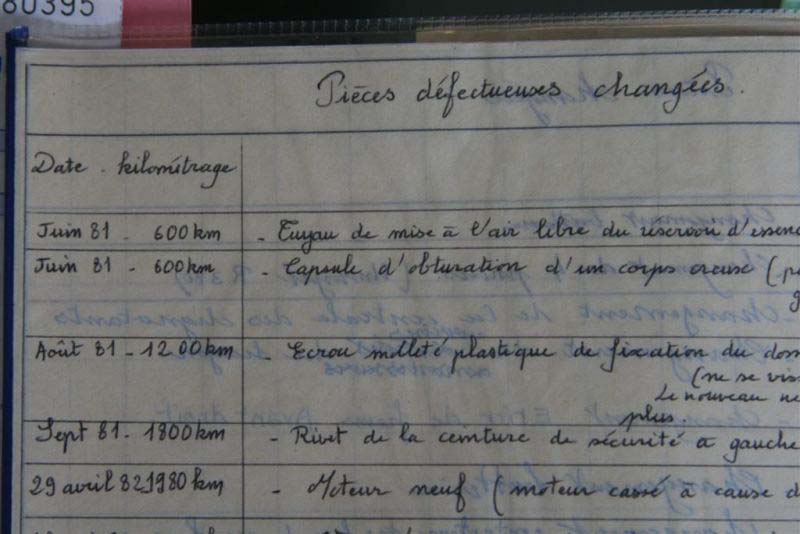 80395
Pièces défectueuses changées.
Date . kilométrage
Juin 81 - 600km - Tuyau de mise à l'air libre du réservoir d'essenc
Juin 81 - 600km - Capsule d'obturation d'un corps creuse (p
g
Août 81 - 1200km - Ecrou molleté plastique de fixation du doss
(ne se vis
Le nouveau ne
plus.
Sept 81 - 1800km - Rivet de la ceinture de sécurité à gauche
29 avril 82 1980km - Moteur neuf (moteur cassé à cause d